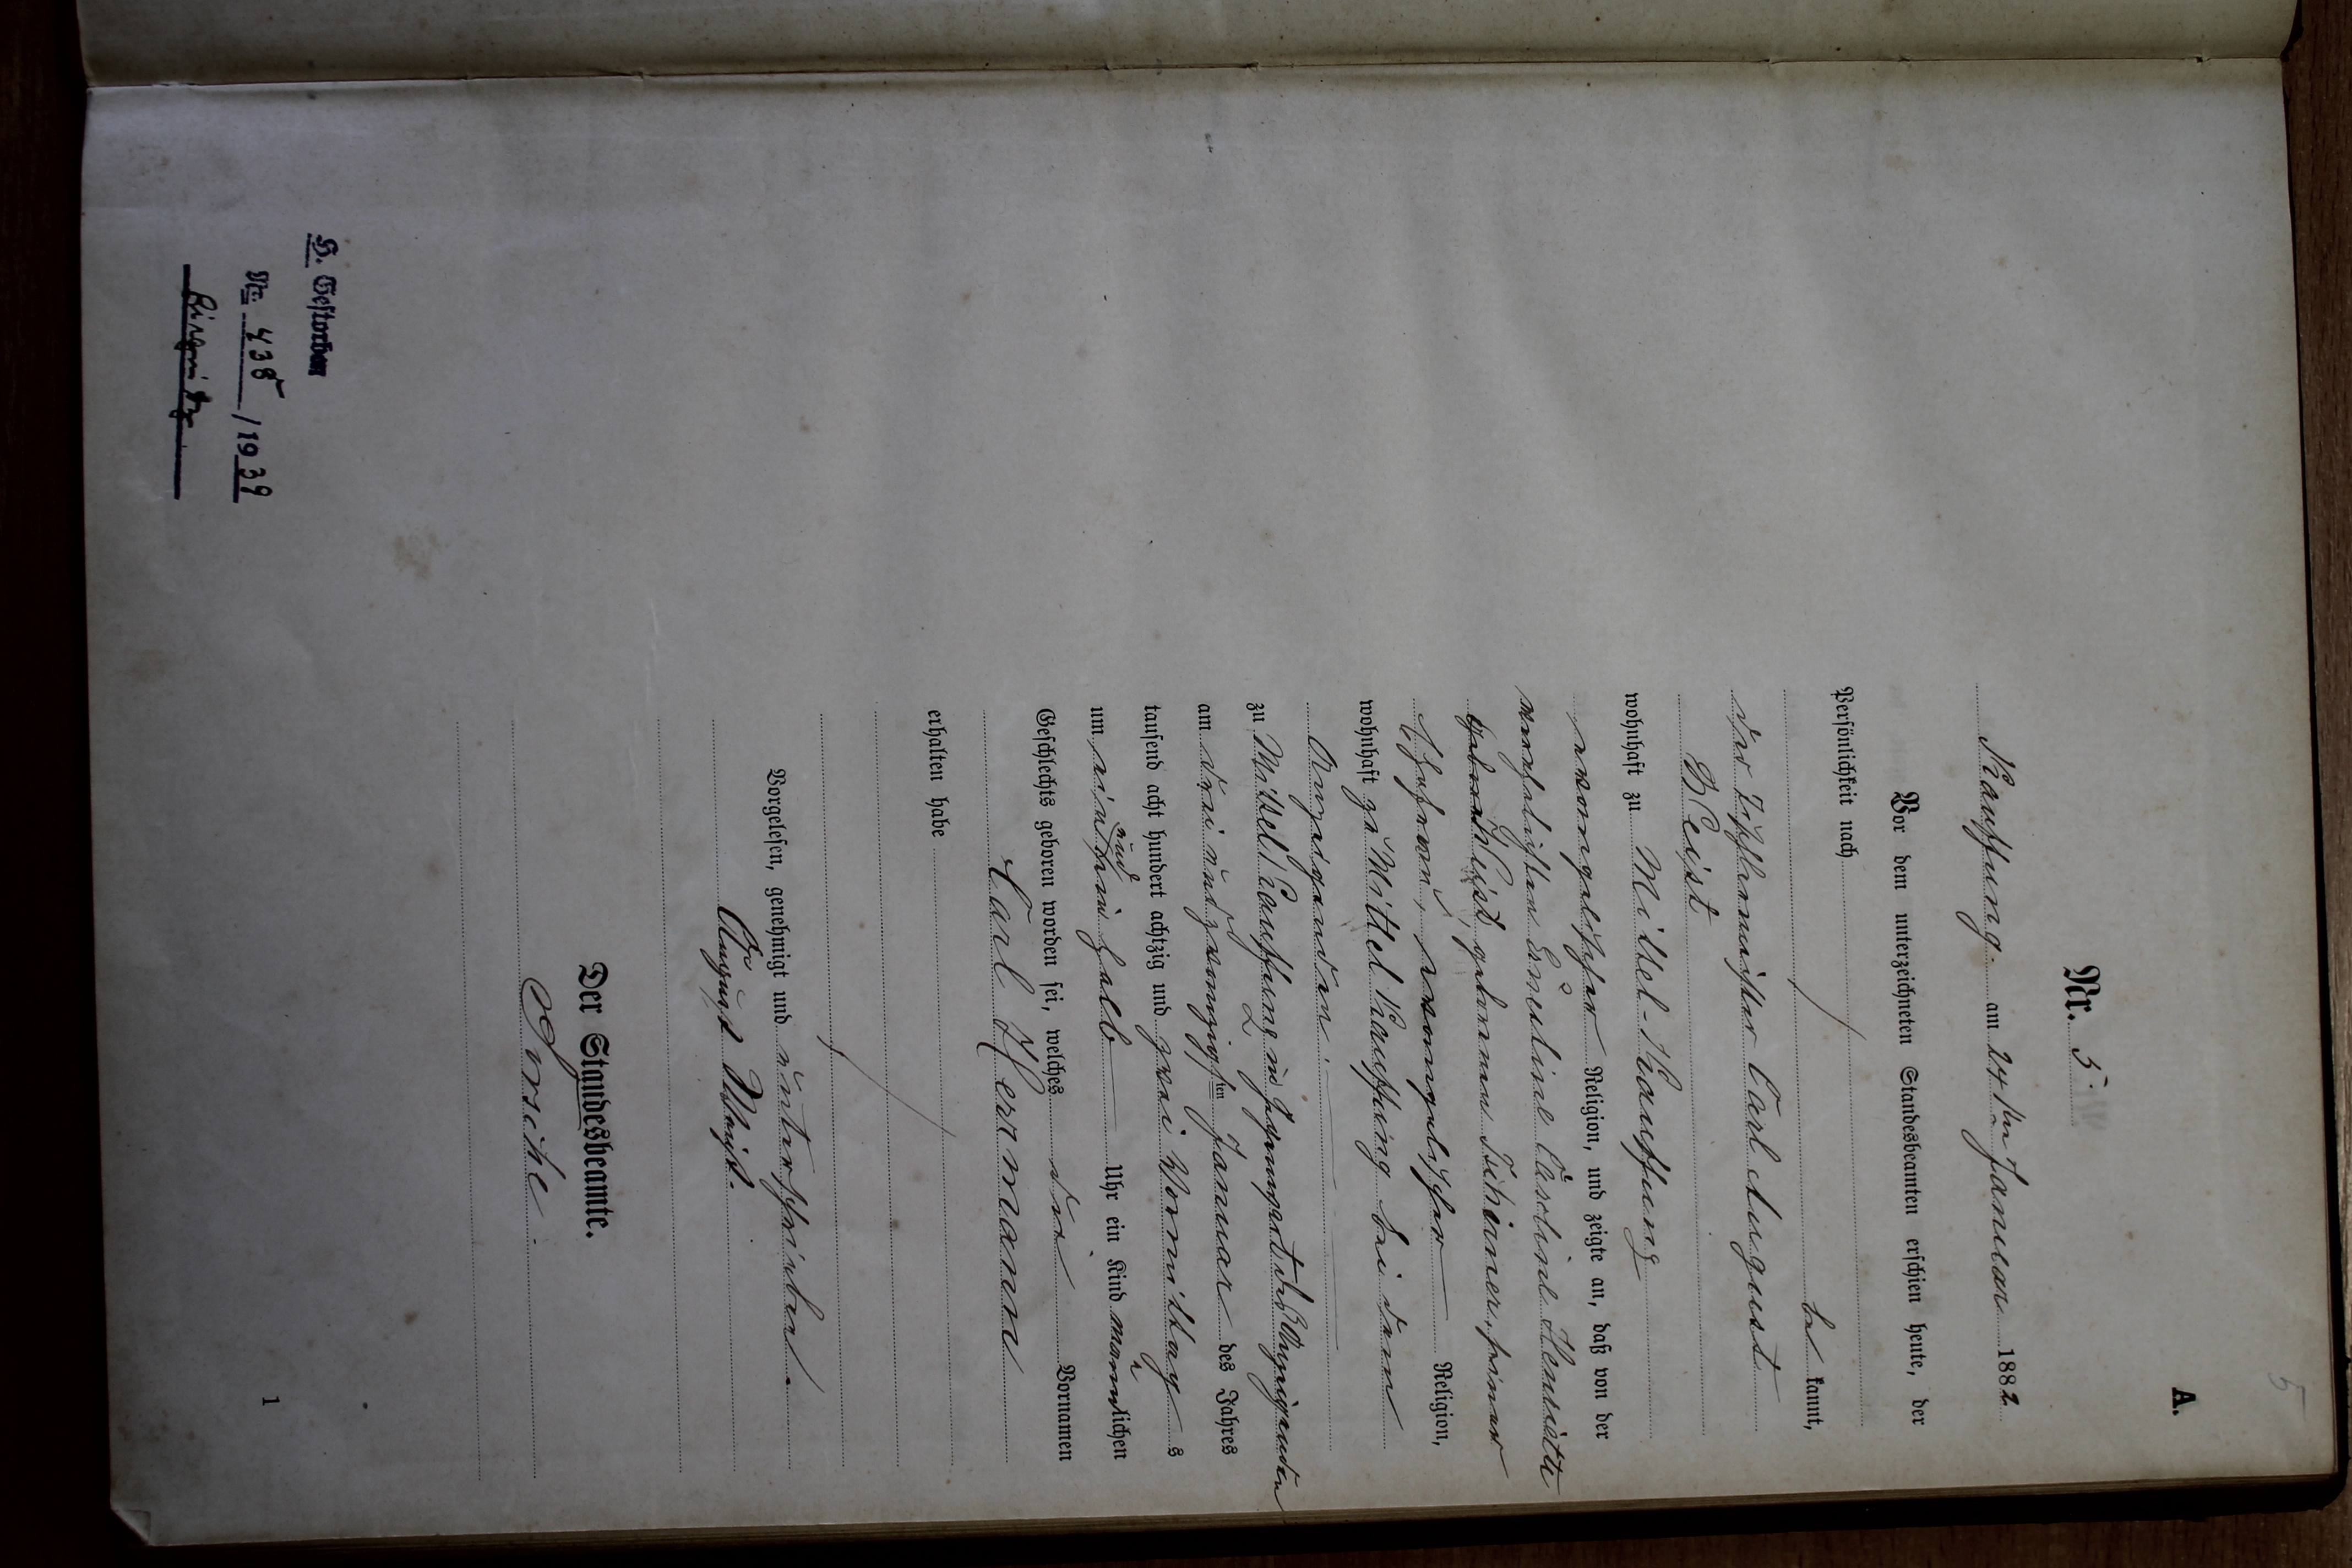 5
A.
Nr. 5.
Kauffung am 24ten Januar 1882
Vor dem unterzeichneten Standesbeamten erschien heute, der
Persönlichkeit nach
be kannt,
der Tischlermeister Carl August
Bleist
wohnhaft zu Mittel-Kauffung
evangelischer Religion, und zeigte an, daß von der
verehelichten Ernestine Caroline Henriette
Bleist, geborenen Tschirner, seiner
Ehefrau, evangelischer Religion,
wohnhaft zu Mittel Kauffung bei dem
Anzeigenden
zu Mittel Kauffung in des Anzeigenden
am drei und zwanzigsten Januar des Jahres
tausend acht hundert achtzig und zwei Vormittag s
um ein halb Uhr ein Kind männlichen
Geschlechts geboren worden sei, welches die Vornamen
Carl Hermann
erhalten habe
Vorgelesen, genehmigt und unterschrieben.
August Bleist.
Der Standesbeamte.
H. Gestorben
Nr. 438 /1939
1